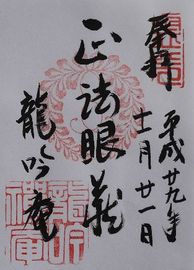 奉拝
平成廿九年
十一月廿一日
正法眼蔵
龍吟庵
龍吟
禅庵